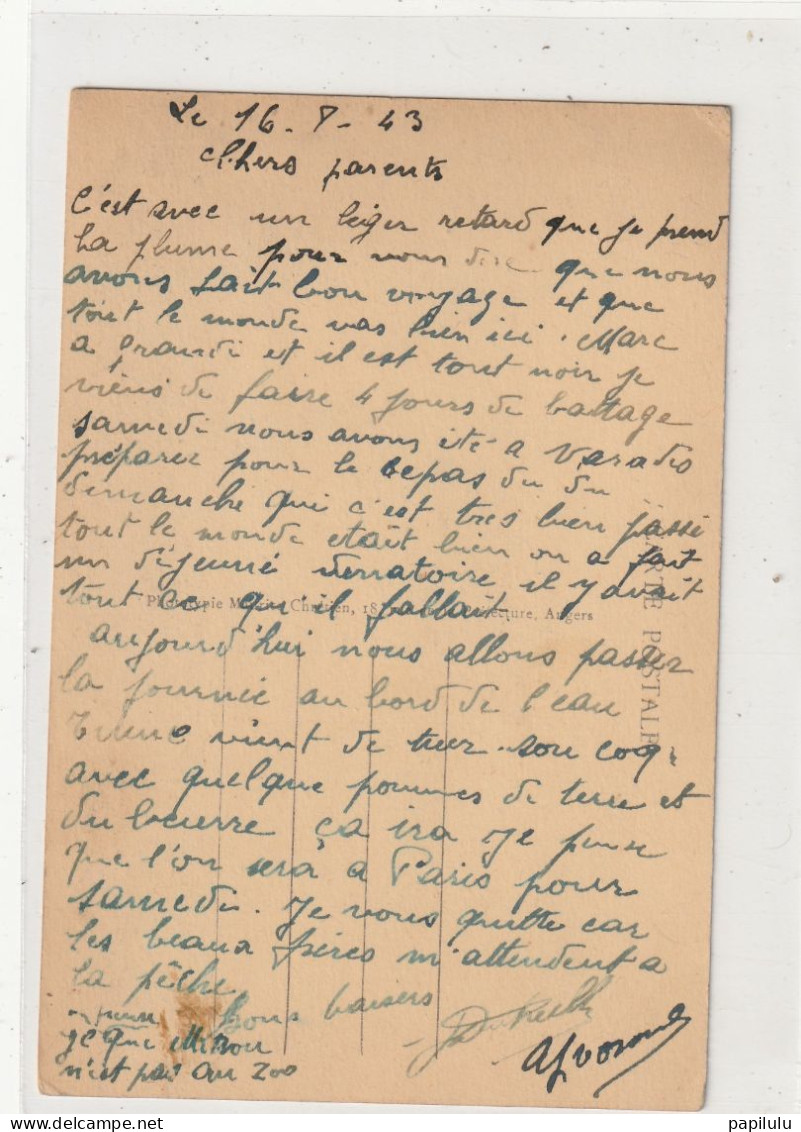 Le 16-8-43
Chers parents
C'est avec un leger retard que je prend
La plume pour vous dire que nous
avons fait bon voyage et que
tout le monde vas bien ici. Marc
a grandi et il est tout noir je
viens de faire 4 jours de battage
samedi nous avons été a Varades
préparer pour le repas du du
dimanche qui c'est tres bien passé
tout le monde etait bien on a fait
un déjeuné il y avait
tout ce qu'il fallait
aujourd'hui nous allons passer
la journée au bord de l'eau
vient de tuer son coq
avec quelque pommes de terre et
du beurre ça ira je pense
que l'on sera a Paris pour
samedi. Je vous quitte car
les beaux frères m'attendent a
la pêche
bons baisers
je que
n'est pas au zoo
CARTE POSTALE
Phototypie Maurice Chrétien, 18, Préfecture, Angers
papilulu